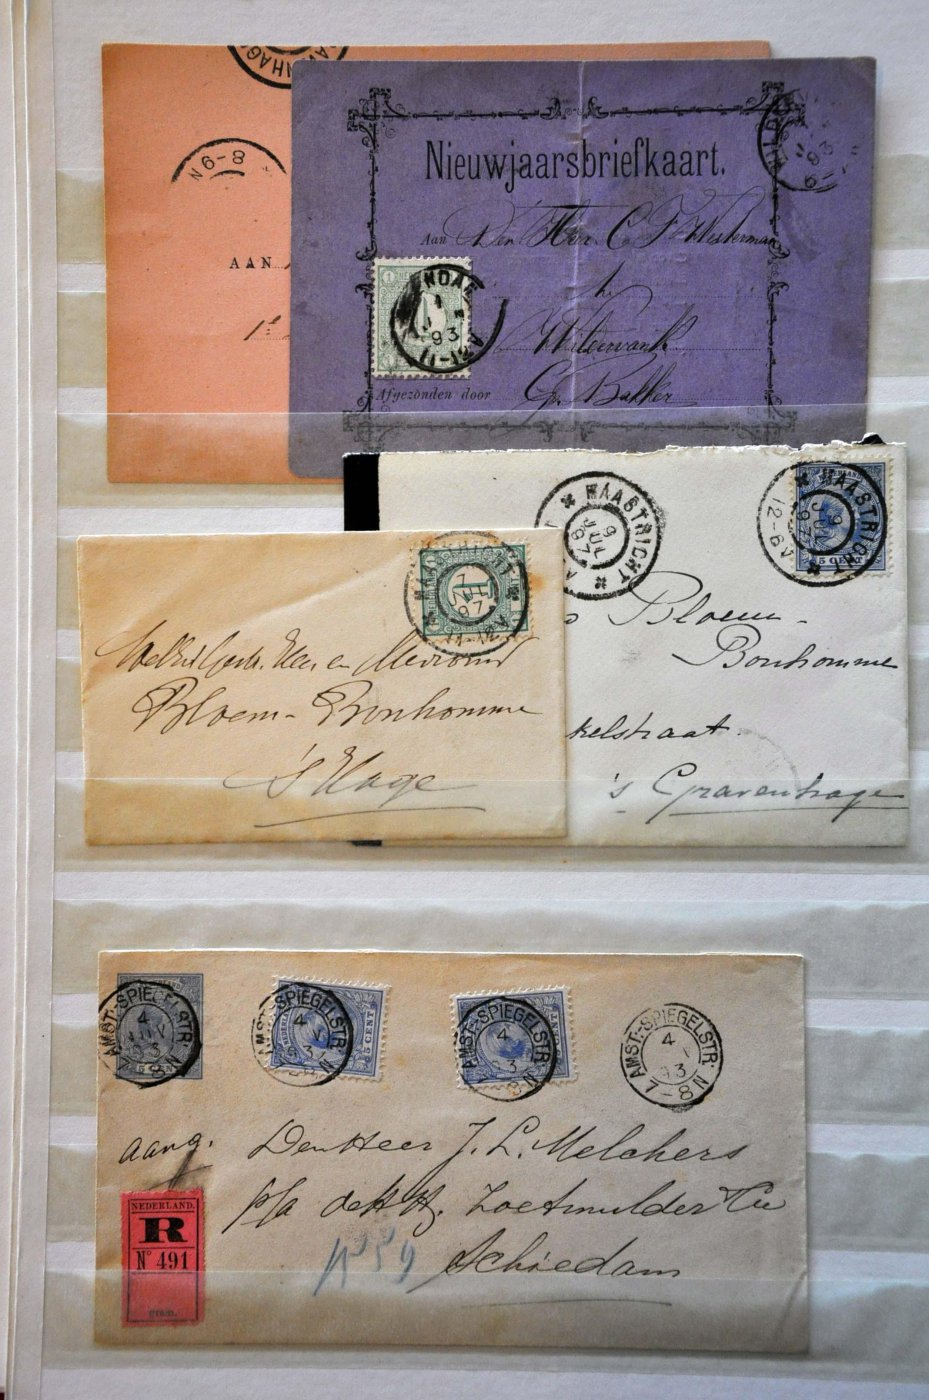 N6-8
AAN
Nieuwjaarsbriefkaart.
Aan Den Heer C F Westerman
te
G. Bakker
Afgezonden door
1
NDAE
1
93
11-12
MAASTRICHT
9 JUL 97
MAASTRICHT
9 JUL 97
12-9N
5 CENT
Bloem-
Bonhomme
kelstraat.
's Gravenhage
1
97
11-12
Heer en Mevrouw
Bloem-Bonhomme
's Hage
AMST-SPIEGELSTR.
4
93
7-8N
AMST-SPIEGELSTR.
4
93
5 CENT
AMST-SPIEGELSTR.
4
93
7-8N
AMST-SPIEGELSTR.
4
93
7-8N
aang.
Den Heer J. L. Melchers
p/a de H.H. Zoetmulder & Cie
Schiedam
NEDERLAND.
R
No 491
gram.